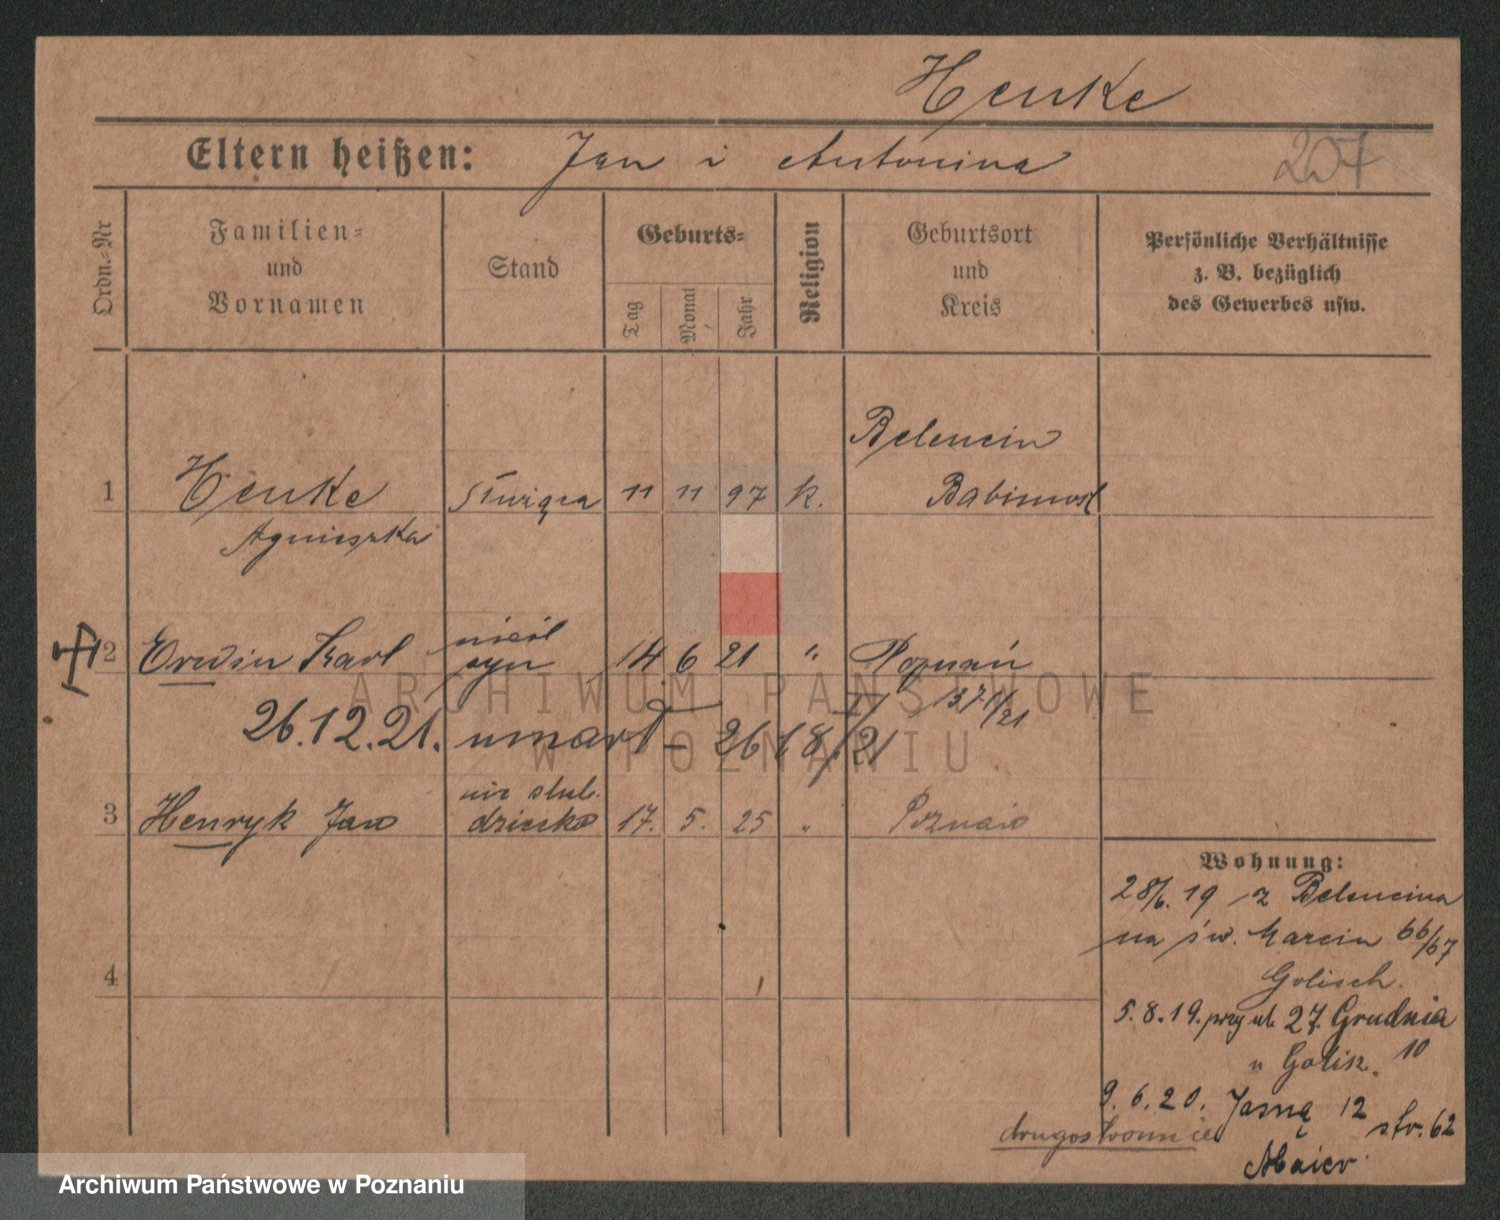 Henke
Eltern heißen: Jan i Antonina
207
Ordn.-Nr
Familien-
und
Vornamen
Stand
Geburts-
Tag
Monat
Jahr
Religion
Geburtsort
und
Kreis
Persönliche Verhältnisse
z. B. bezüglich
des Gewerbes usw.
Belencin
1 Henke służąca 11 11 97 k. Babimost
Agnieszka
nieśl
2 Erwin Karl syn 14 6 21 " Poznań
1371/21
26.12.21. umarł – 26/8/21
nie ślub.
3 Henryk Jan dziecko 17. 5. 25 " Poznań
4
Wohnung:
28/6.19 z Belencina
na św. Marcin 66/67
Golisch.
5.8.19. przy ul. 27. Grudnia
u Golisz. 10
9.6.20. Jasną 12
str. 62
drugostronnie
Maier
ARCHIWUM PAŃSTWOWE
W POZNANIU
Archiwum Państwowe w Poznaniu